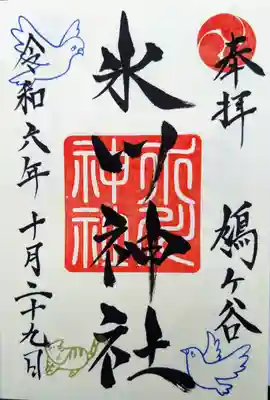 奉拝
鳩ヶ谷
氷川神社
氷川神社
令和六年十月二十九日